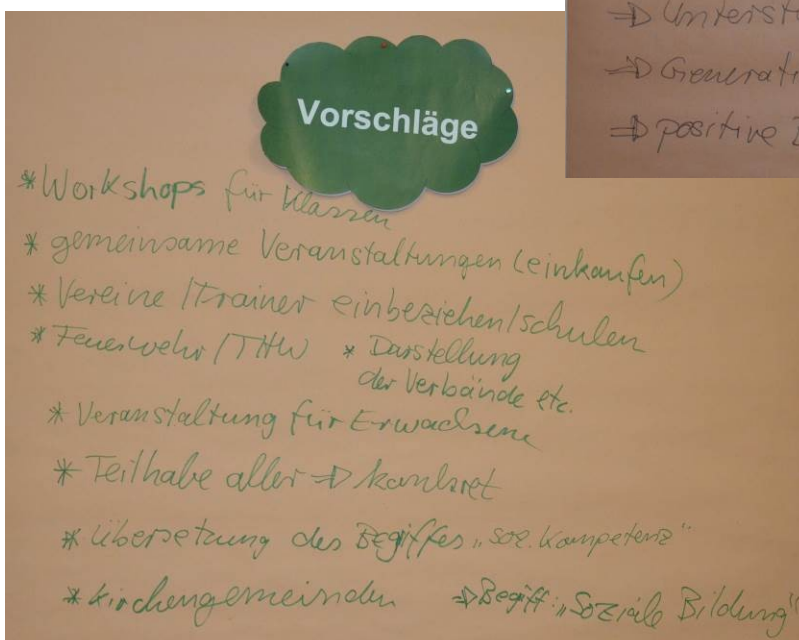 ⇒ Unterst
⇒ Generati
⇒ positive
Vorschläge
* Workshops für Klassen
* gemeinsame Veranstaltungen (einkaufen)
* Vereine / Trainer einbeziehen / schulen
* Feuerwehr / THW * Darstellung
der Verbände etc.
* Veranstaltung für Erwachsene
* Teilhabe aller ⇒ konkret
* Übersetzung des Begriffes „soz. Kompetenz“
* Kirchengemeinden ⇒ Begriff: „Soziale Bildung“